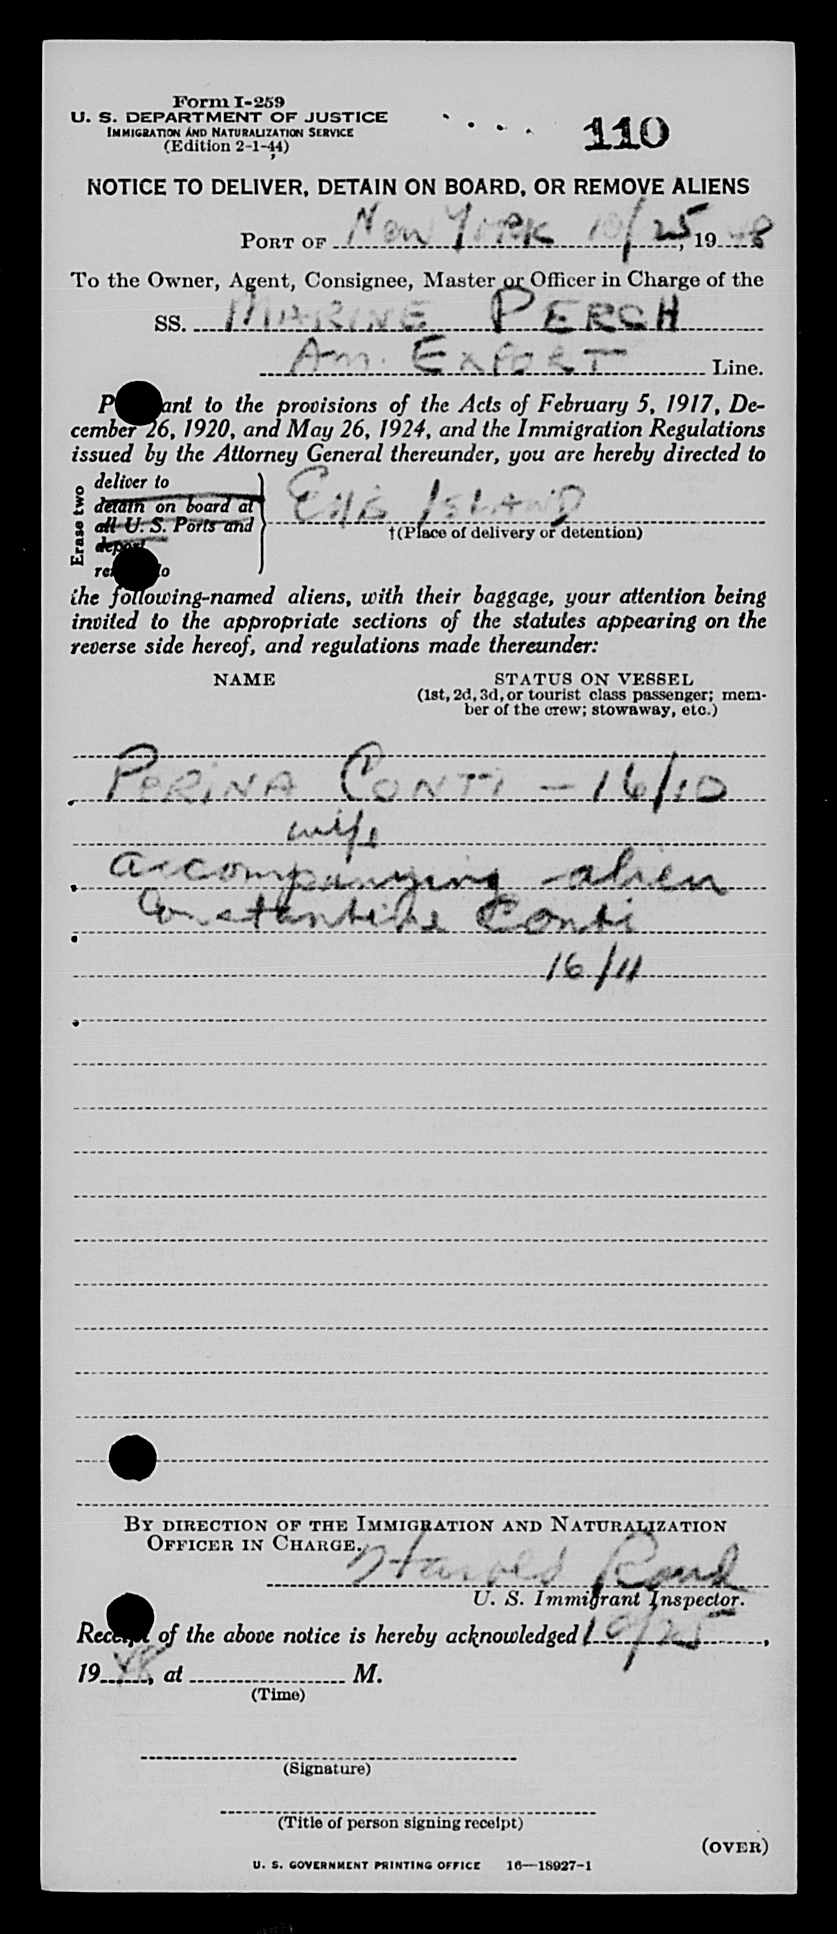 Form I-259
U. S. DEPARTMENT OF JUSTICE
IMMIGRATION AND NATURALIZATION SERVICE
(Edition 2-1-44)
110
NOTICE TO DELIVER, DETAIN ON BOARD, OR REMOVE ALIENS
PORT OF New York 10/25, 1948
To the Owner, Agent, Consignee, Master or Officer in Charge of the
SS. MARINE PERCH
Am. EXPORT Line.
P ant to the provisions of the Acts of February 5, 1917, De-
cember 26, 1920, and May 26, 1924, and the Immigration Regulations
issued by the Attorney General thereunder, you are hereby directed to
Erase two
deliver to
detain on board at
all U. S. Ports and
deport
re to
Ellis ISLAND
†(Place of delivery or detention)
the following-named aliens, with their baggage, your attention being
invited to the appropriate sections of the statutes appearing on the
reverse side hereof, and regulations made thereunder:
NAME STATUS ON VESSEL
(1st, 2d, 3d, or tourist class passenger; mem-
ber of the crew; stowaway, etc.)
PERINA CONTI - 16/10
wife
accompanying - alien
Constantine Conti
16/11
BY DIRECTION OF THE IMMIGRATION AND NATURALIZATION
OFFICER IN CHARGE.
Harold
U. S. Immigrant Inspector.
Receipt of the above notice is hereby acknowledged 10/25,
1948, at M.
(Time)
(Signature)
(Title of person signing receipt)
(OVER)
U. S. GOVERNMENT PRINTING OFFICE 16—18927-1